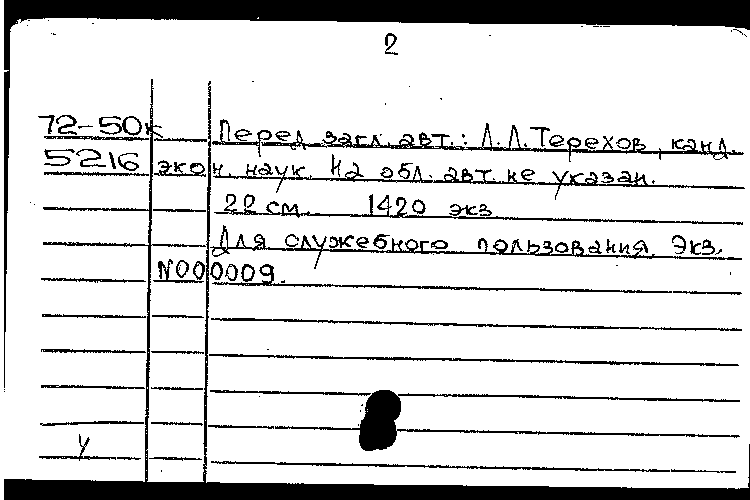 2
72-50к Перед загл. авт.: Л.Л. Терехов, канд.
5216 экон. наук. На обл. авт. не указан.
22 см. 1420 экз
Для служебного пользования. Экз.
N000009.
У